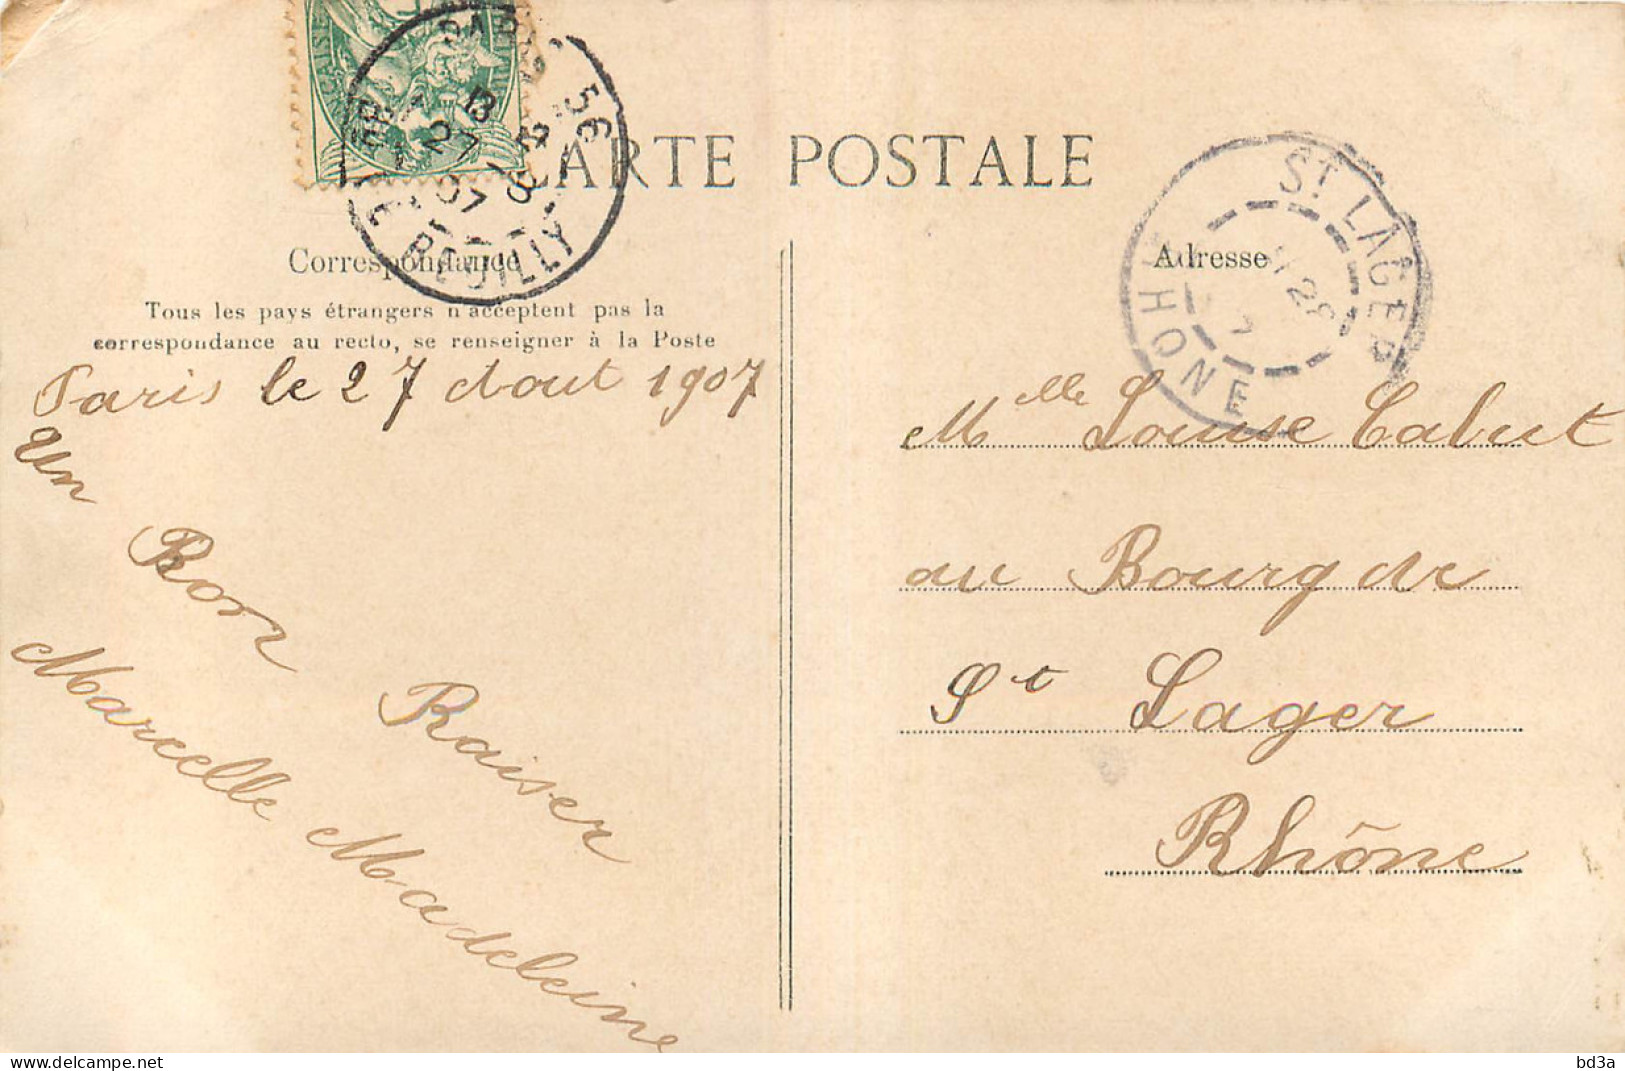 CARTE POSTALE
Correspondance
Tous les pays étrangers n'acceptent pas la
correspondance au recto, se renseigner à la Poste
Paris le 27 Aout 1907
Un Bon Baiser
Marcelle Madeleine
Adresse
Mlle Louise Cabut
au Bourg de
St Lager
Rhône
PARIS 56
27
07
REUILLY
ST LAGER
RHONE
bd3a